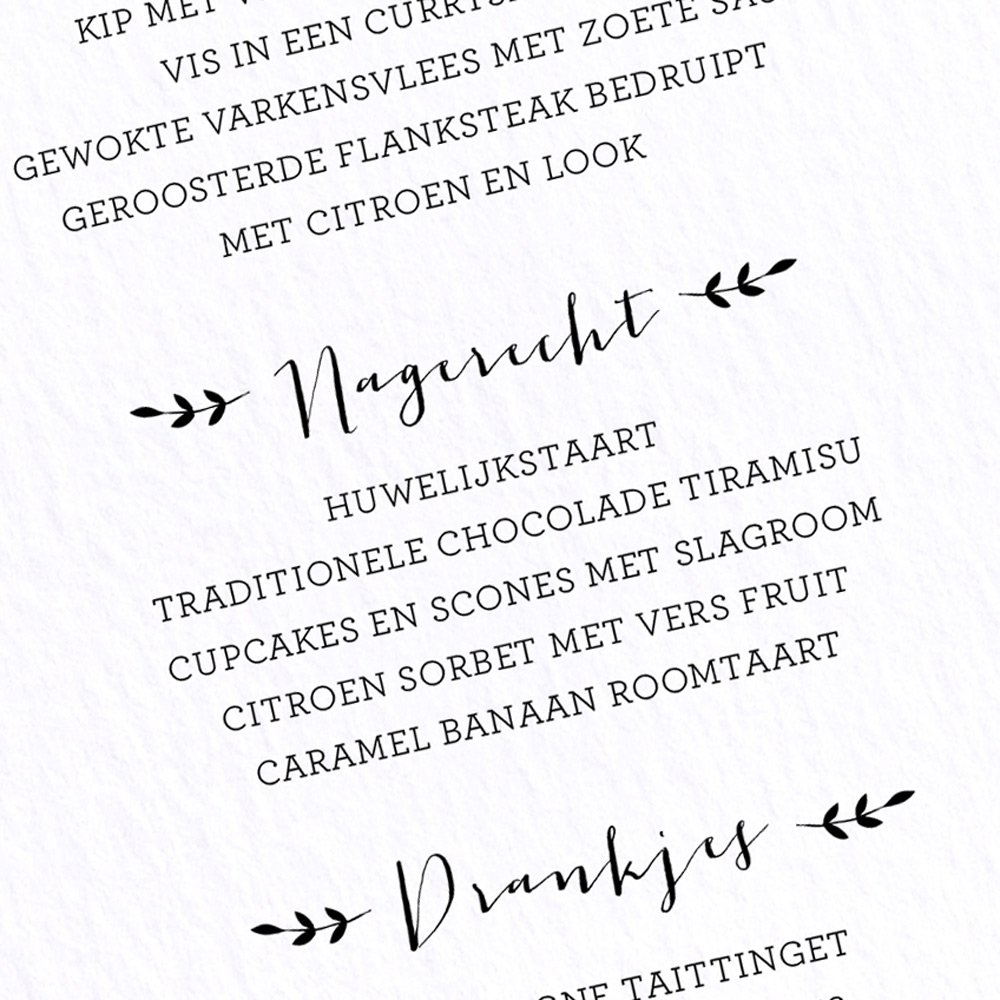 KIP MET
VIS IN EEN
GEWOKTE VARKENSVLEES MET ZOETE
GEROOSTERDE FLANKSTEAK BEDRUIPT
MET CITROEN EN LOOK
Nagerecht
HUWELIJKSTAART
TRADITIONELE CHOCOLADE TIRAMISU
CUPCAKES EN SCONES MET SLAGROOM
CITROEN SORBET MET VERS FRUIT
CARAMEL BANAAN ROOMTAART
Drankjes
TAITTINGET